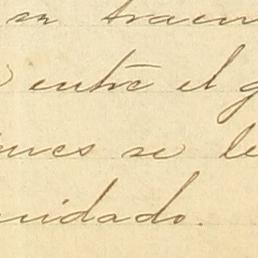 en traen
entre el g
nes se le
uidado.